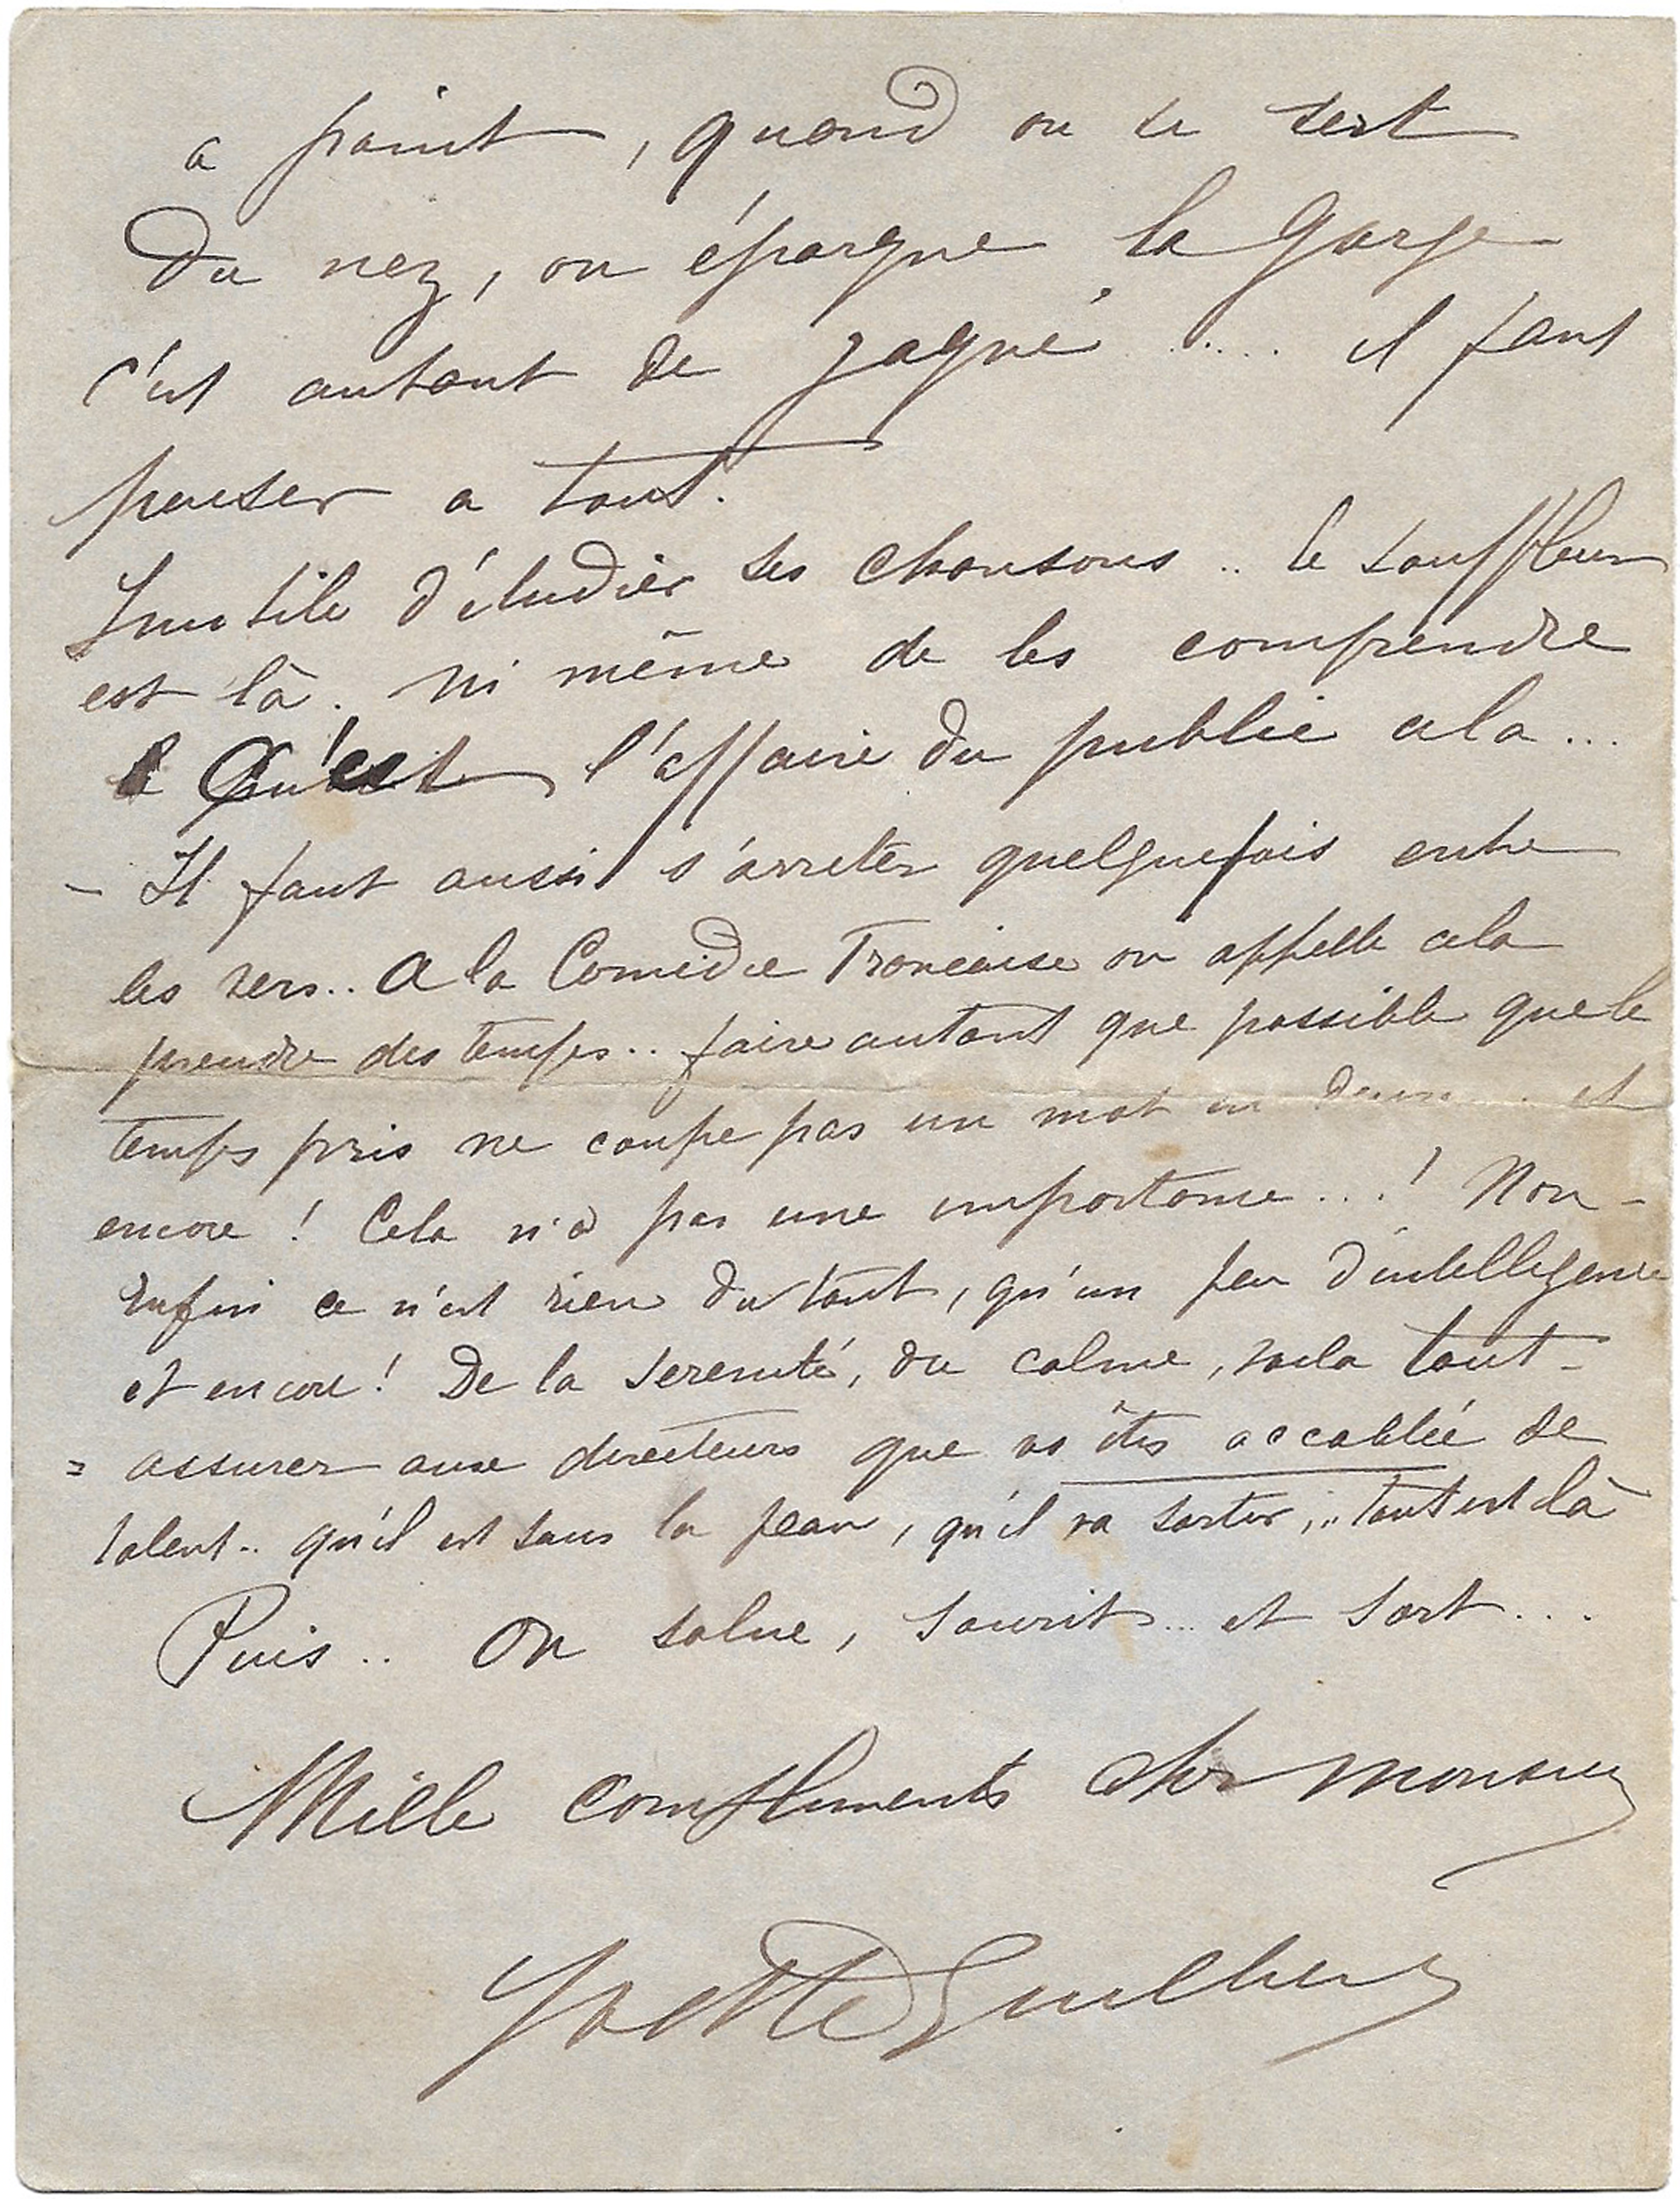 a point, quand on se sert
du nez, on épargne la gorge
c'est autant de gagné ..... il faut
penser a tout.
Inutile d'étudier ses chansons .. le souffleur
est là. ni même de les comprendre
C'est l'affaire du public cela ...
- Il faut aussi s'arreter quelquefois entre
les vers .. A la Comedie Francaise on appelle cela
prendre des temps .. faire autant que possible que le
temps pris ne coupe pas un mot en deux .. et
encore ! Cela n'a pas une importance ...! Non -
Enfin ce n'est rien du tout, qu'un peu d'intelligence
et encore ! De la serenité, du calme, voila tout -
= assurer aux directeurs que vs êtes accablée de
talent .. qu'il est sous la peau, qu'il va sortir, .. tout est là
Puis .. On salue, sourit ... et sort ...
Mille compliments cher monsieur
Yvette Guilbert